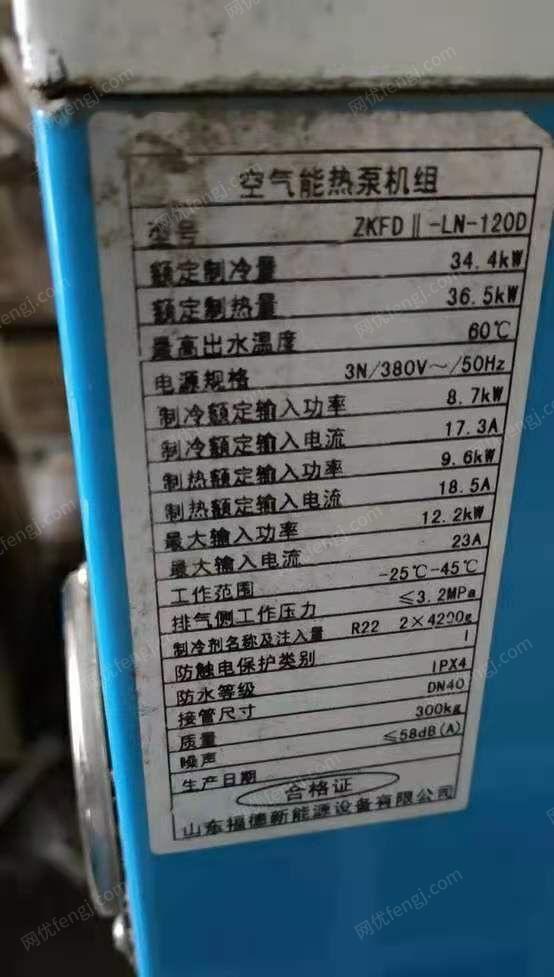 空气能热泵机组
型号 ZKFDⅡ-LN-120D
额定制冷量 34.4kW
额定制热量 36.5kW
最高出水温度 60℃
电源规格 3N/380V～/50Hz
制冷额定输入功率 8.7kW
制冷额定输入电流 17.3A
制热额定输入功率 9.6kW
制热额定输入电流 18.5A
最大输入功率 12.2kW
最大输入电流 23A
工作范围 -25℃-45℃
排气侧工作压力 ≤3.2MPa
制冷剂名称及注入量 R22 2×4200g
防触电保护类别 I
防水等级 IPX4
接管尺寸 DN40
质量 300kg
噪声 ≤58dB(A)
生产日期
合格证
山东福德新能源设备有限公司
网优fengj.com